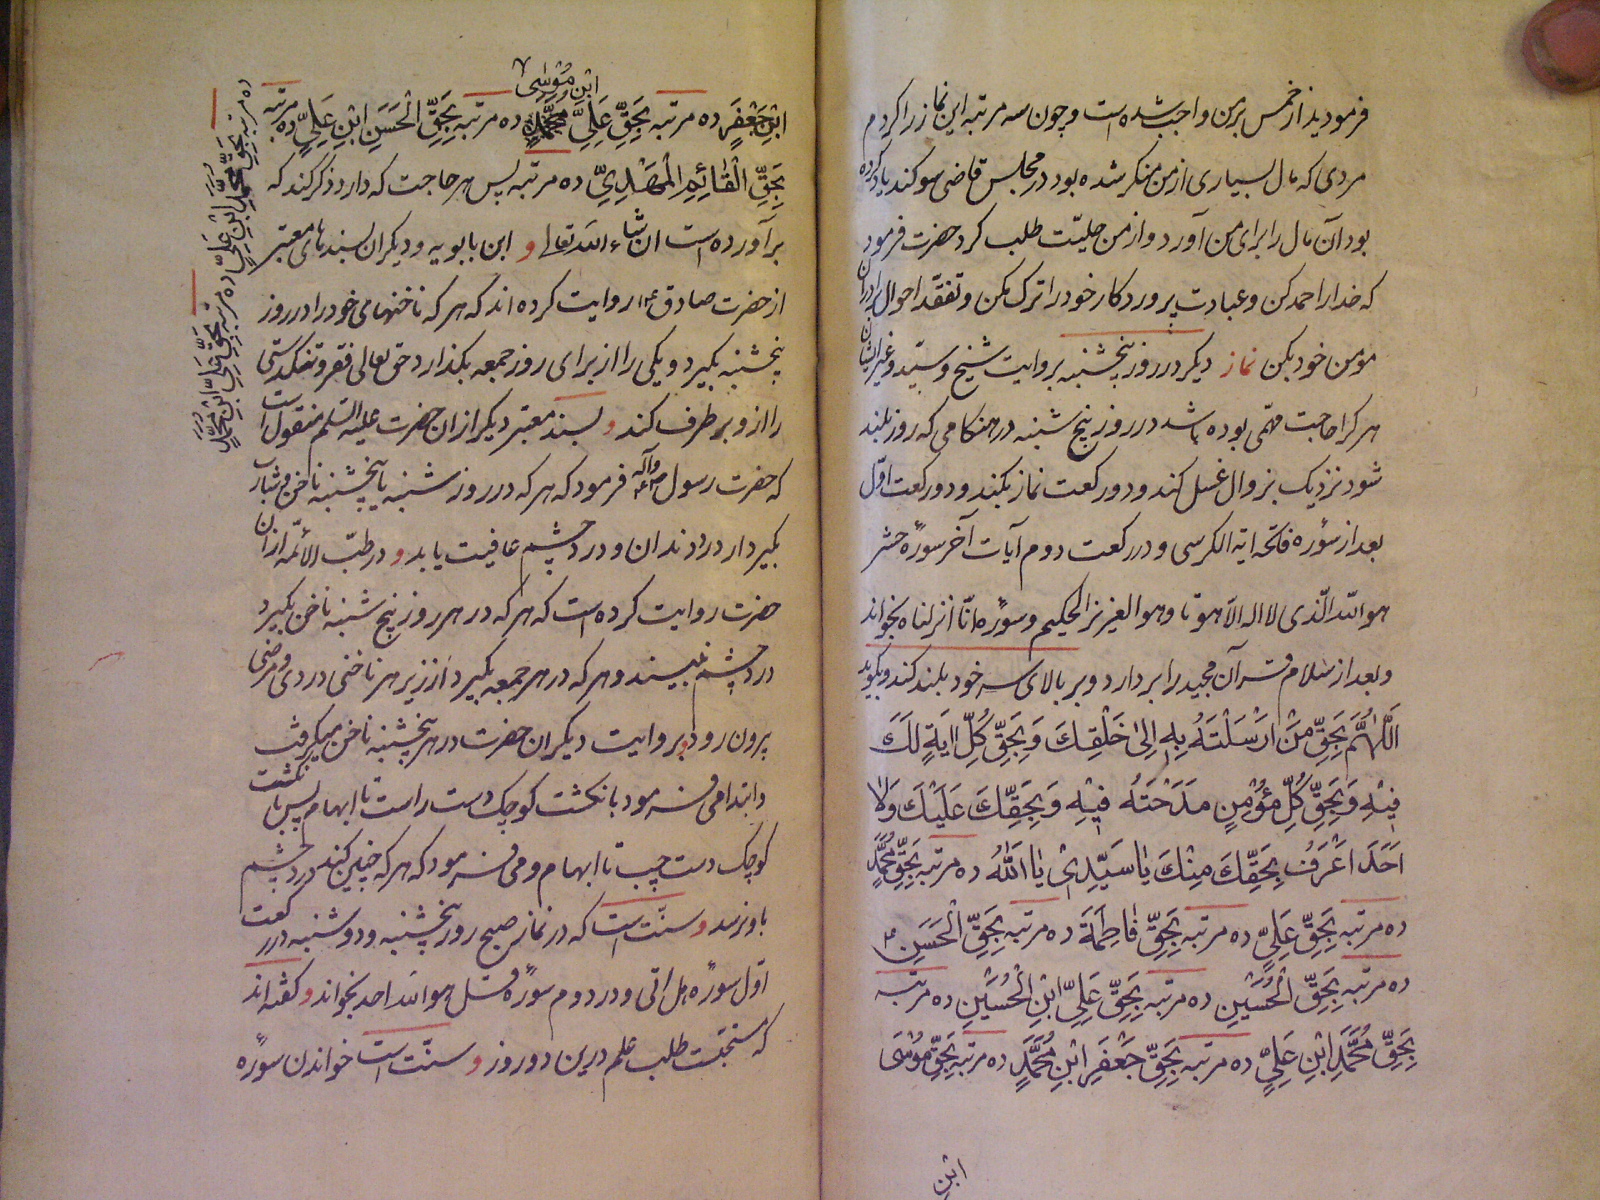 فرمودید از خمس بر من واجب شده است و چون سه مرتبه این نماز را کردم
مردی که مال بسیاری از من منکر شده بود در مجلس قاضی سوکند یاد کرده
بود آن مال را برای من آورد و از من حلیّت طلب کرد حضرت فرمود
که خدا را حمد کن و عبادت پروردکار خود را ترک مکن و تفقد احوال برادران
مومن خود بکن نماز دیکر در روز پنجشنبه بروایت شیخ و سیّد و غیر ایشان
هر کرا حاجت مهمّی بوده باشد در روز پنج شنبه در هنکامی که روز بلند
شود نزدیک بزوال غسل کند و دو رکعت نماز بکند و در رکعت اوّل
بعد از سوره فاتحه ایة الکرسی و در رکعت دوم آیات آخر سوره حشر
هو الله الّذی لا اله الا هو تا و هو العزیز الحکیم و سوره انّا انزلناه بخواند
و بعد از سلام قرآن مجید را بردارد و بر بالای سر خود بلند کند و بکوید
اَللّٰهُمَّ بِحَقِّ مَنْ اَرْسَلْتَهُ بِهِ اِلیٰ خَلْقِكَ وَ بِحَقِّ كُلِّ ایَةٍ لَكَ
فِیْهِ وَ بِحَقِّ كُلِّ مُؤْمِنٍ مَدَحْتَهُ فِیْهِ وَ بِحَقِّكَ عَلَیْكَ وَلا
اَحَدَ اَعْرَفُ بِحَقِّكَ مِنْكَ یا سَیِّدِیْ یا اَللهُ ده مرتبه بِحَقِّ مُحَمَّدٍ
ده مرتبه بِحَقِّ عَلِیٍّ ده مرتبه بِحَقِّ فاطِمَةَ ده مرتبه بِحَقِّ الْحَسَنِ
ده مرتبه بِحَقِّ الْحُسَیْنِ ده مرتبه بِحَقِّ عَلِیِّ ابْنِ الْحُسَیْنِ ده مرتبه
بِحَقِّ مُحَمَّدِ ابْنِ عَلِیٍّ ده مرتبه بِحَقِّ جَعْفَرِ ابْنِ مُحَمَّدٍ ده مرتبه بِحَقِّ مُوْسَی
ابْنِ
ابْنِ مُوْسٰی
ابْنِ جَعْفَرٍ ده مرتبه بِحَقِّ عَلِیِّ ده مرتبه بِحَقِّ الْحَسَنِ ابْنِ عَلِیٍّ ده مرتبه
بِحَقِّ الْقائِمِ الْمَهْدِیِّ ده مرتبه پس هر حاجت که دارد ذکر کند که
برآورده است ان شاء الله تعالی و ابن بابویه و دیکران بسندهای معتبر
از حضرت صادق ع روایت کرده اند که هر که ناخنهای خود را در روز
پنجشنبه بکیرد و یکی را از برای روز جمعه بکذارد حق تعالی فقر و تنکدستی
را از و بر طرف کند و بسند معتبر دیکر از ان حضرت علیه السلم منقول است
که حضرت رسول ص و آله فرمود که هر که در روز شنبه یا پنجشنبه ناخن و شارب
بکیرد از درد دندان و درد چشم عافیت یابد و در طبّ الائمّه از ان
حضرت روایت کرده است که هر که در هر روز پنج شنبه ناخن بکیرد
درد چشم نبیند و هر که در هر جمعه بکیرد از زیر هر ناخنی دردی و مرضی
برون رود و بروایت دیکر ان حضرت در هر پنجشنبه ناخن میکرفت
و ابتدا می فرمود بانکشت کوچک دست راست تا ابهام پس بانکشت
کوچک دست چپ تا ابهام و می فرمود که هر که چنین کند درد چشم
باو نرسد و سنّت است که در نماز صبح روز پنجشنبه و دوشنبه در رکعت
اوّل سوره هل اتی و در دوم سوره قل هو الله احد بخواند و کفته اند
که مستحبّست طلب علم درین دو روز و سنّت است خواندن سوره
ده مرتبه بِحَقِّ مُحَمَّدِ ابْنِ عَلِیٍّ ده مرتبه بِحَقِّ عَلِیِّ ابْنِ مُحَمَّدٍ